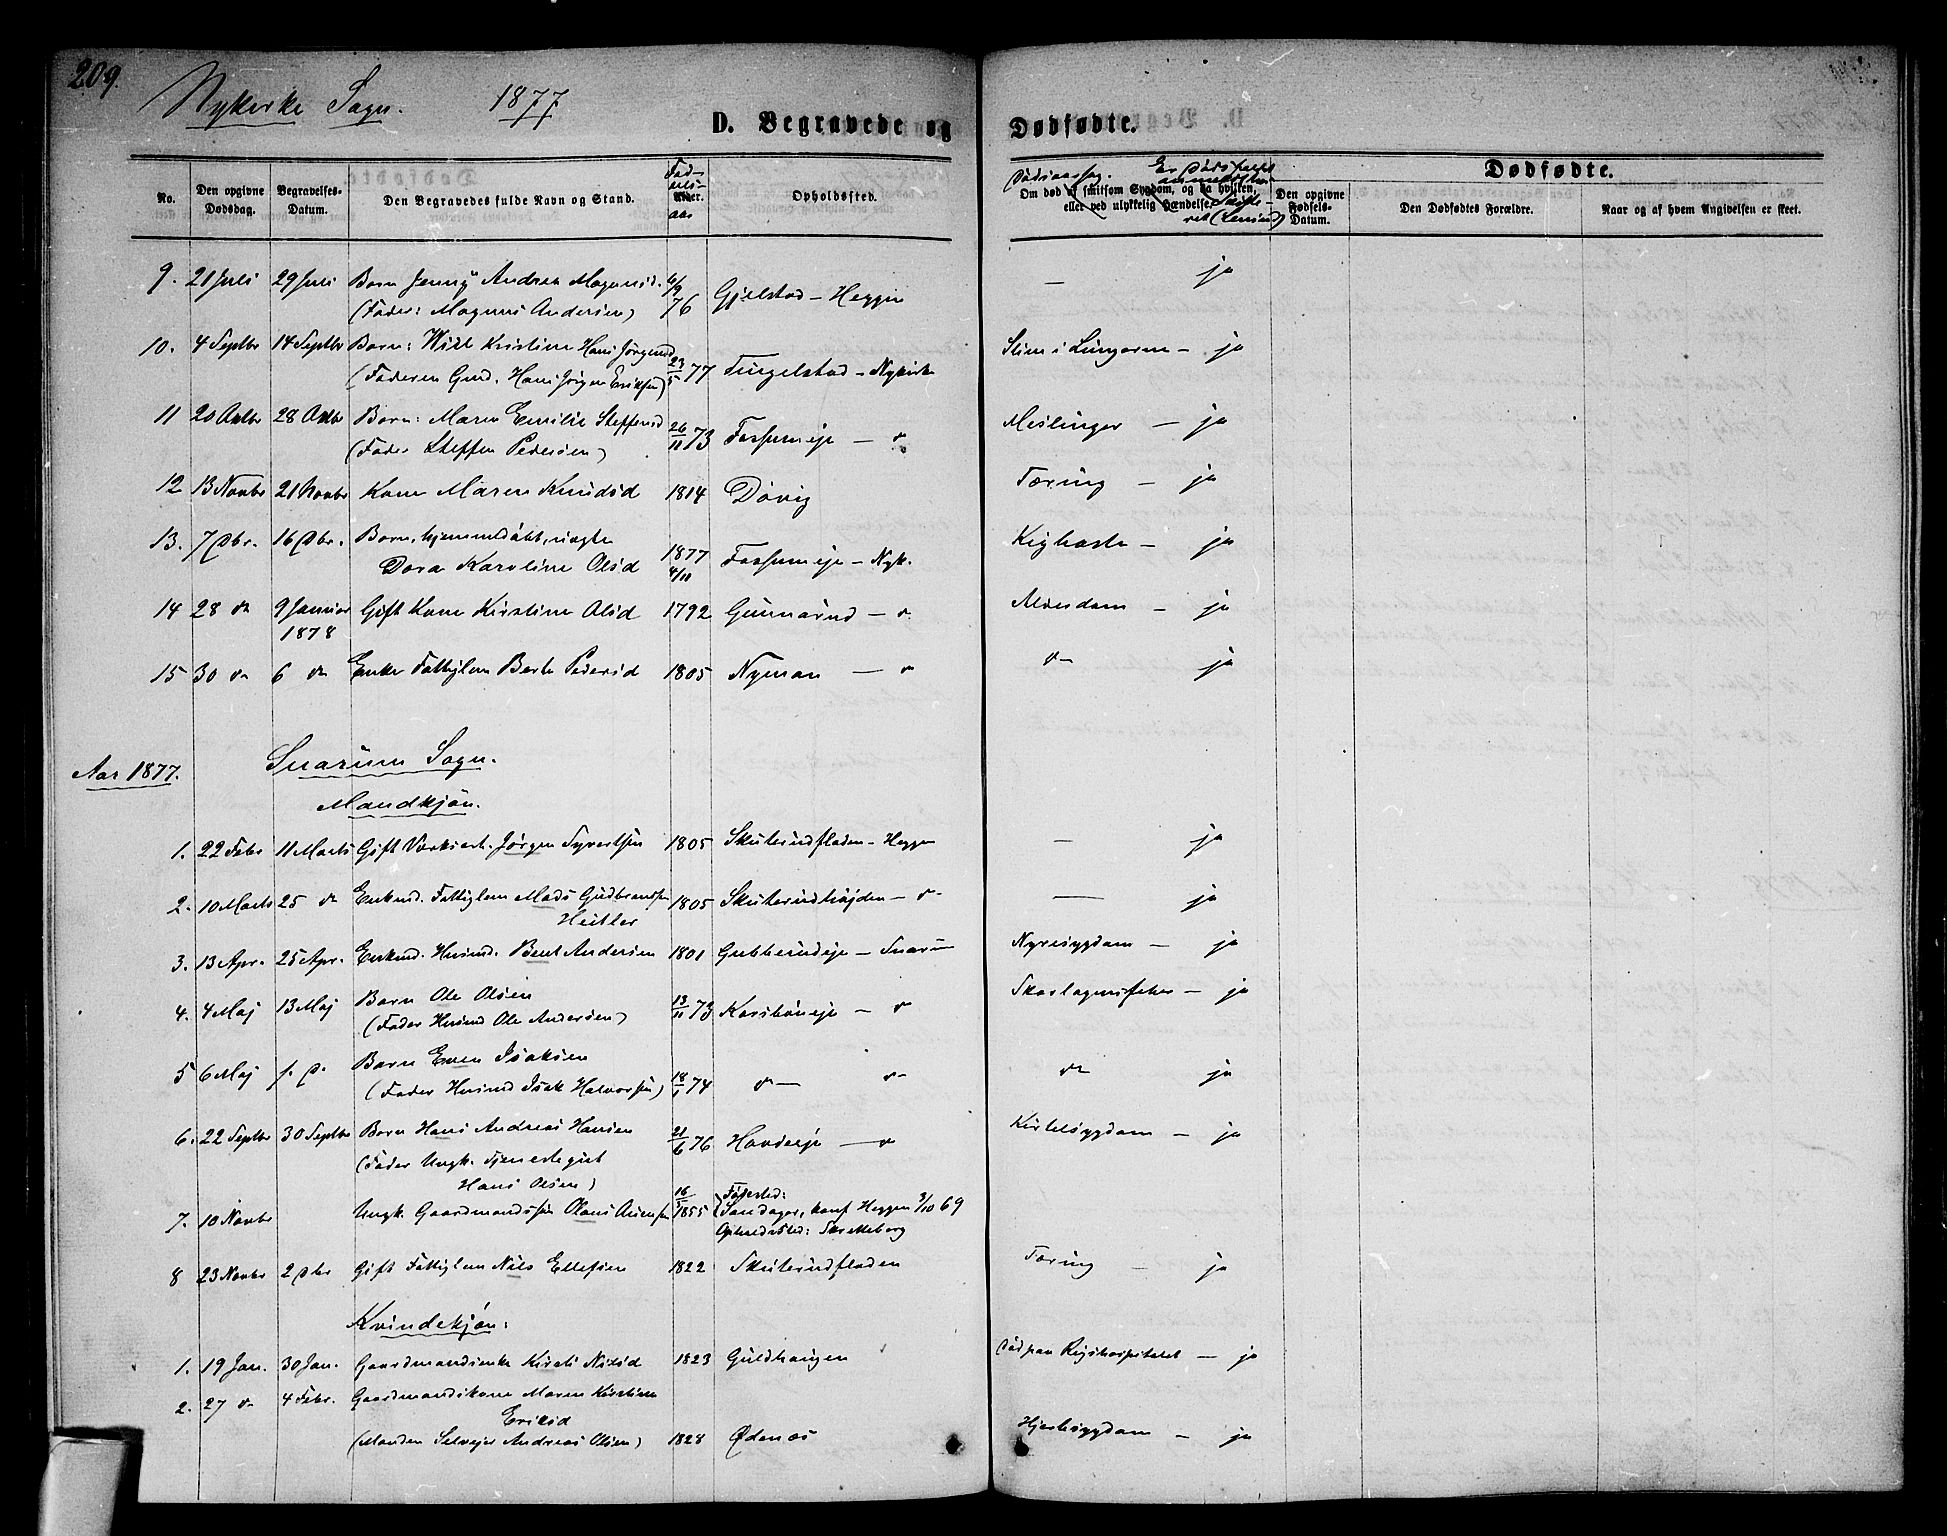 209.
Nykirke Sogn. 1877
D. Begravede og Dødfødte.
No.
Den opgivne Dødsdag.
Begravelses-Datum.
Den Begravedes fulde Navn og Stand.
Fødselsaar
Opholdssted.
Dødsaarsag.
Om død af smitsom Sygdom, og da hvilken, eller ved ulykkelig Hændelse.
Er Dødsfaldet anmeldt for Skifteret (Lensmd)
Dødfødte.
Den opgivne Fødsels-Datum.
Den Dødfødtes Forældre.
Naar og af hvem Angivelsen er skeet.
9. 21 Juli 29 Juli Barn Jenny Andrea Magnusd. 6/9 76 Gjelstad – Heggen — ja
(Fader: Magnus Andersen)
10. 4 Septbr 14 Septbr Barn: Kristine Hans Jørgensd 23/5 77 Tingelstad – Nykirke Sliim i Lungerne – ja
(Faderen Gmd. Hans Jørgen Eriksen)
11 20 Octbr 28 Octbr Barn: Maren Emilie Steffensd 26/11 73 Fossumeje – do Meslinger – ja
(Fader Steffen Pedersen)
12 13 Novbr 21 Novbr Kone Maren Knudsd 1814 Døvig Tæring – ja
13. 7 Dbr. 16 Dbr. Barn, hjemmedøbt, uægte
Dora Karoline Olsd 1877 4/11 Fossumeje – Nyk. Kighoste – ja
14 28 do 9 Januar 1878 Gift Kone Kirstine Olsd 1792 Gunnarud – do Alderdom – ja
15 30 do 6 do Enke Fattiglem Berte Pedersd 1805 Nyman – do do ja
Aar 1877.
Snarum Sogn.
Mandkjøn.
1. 22 Febr 11 Marts Gift Værksarb. Jørgen Syvertsen 1805 Skuterudfladen – Heggen — ja
2. 10 Marts 25 do Enkmd. Fattiglem Mads Gudbrandsen 1805 Skuterudhøjden – do — ja
3. 13 Apr. 25 Apr. Enkmd. Husmd. Bent Andersen 1801 Gubberudeje – Snarum Nyresygdom – ja
4. 4 Maj 13 Maj Barn Ole Olsen 13/11 73 Korsbøneje – do Skarlagensfeber – ja
(Fader Husmd Ole Andersen)
5 6 Maj s. D. Barn Even Isaksen 18/1 74 do – do do ja
(Fader Husmd Isak Halvorsen)
6. 22 Septbr 30 Septbr Barn Hans Andreas Hansen 21/6 76 Hovdeeje – do Kirtelsygdom – ja
(Fader Ungk. Tjenestegut
Hans Olsen)
7. 10 Novbr Ungk. Gaardmandssøn Olaus 16/5 1855 Fødested:
konf Heggen 3/10 69
Opholdssted:
8 23 Novbr 2 Dbr Gift Fattiglem Nils Ellefsen 1822 Skuterudfladen Tæring – ja
Kvindekjøn:
1. 19 Jan. 30 Jan. Gaardmandsenke Kirsti Nilsd 1823 Guldhaugen Død paa Rigshospitalet – ja
2. 27 do 4 Febr. Gaardmandskone Maren Kirstine
Eriksd
(Manden Selvejer Andreas Olsen) 1828 Ødenæs Hjertesygdom – ja